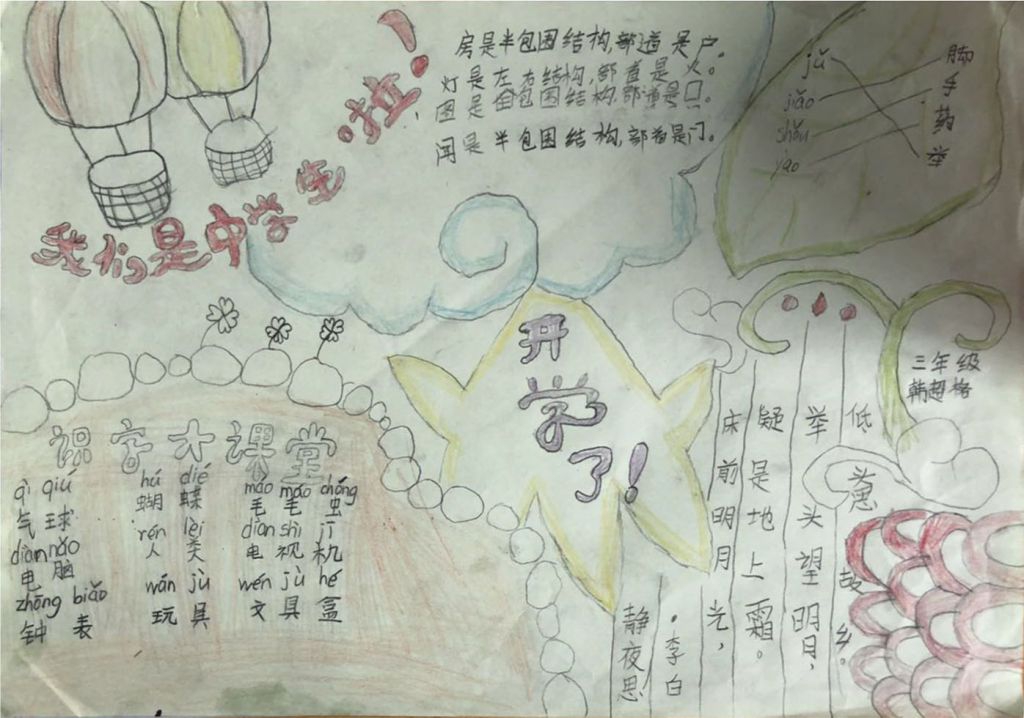 我们是中学生啦!
房是半包围结构,部首是户。
灯是左右结构,部首是火。
图是全包围结构,部首是口。
闻是半包围结构,部首是门。
jǔ 脚
jiǎo 手
shǒu 药
yào 举
开学了!
三年级
识字大课堂
qì qiú hú dié máo máo chóng
气球 蝴蝶 毛毛虫
diàn nǎo rén lèi diàn shì jī
电脑 人类 电视机
zhōng biǎo wán jù wén jù hé
钟表 玩具 文具盒
静夜思
·李白
床前明月光,
疑是地上霜。
举头望明月,
低头思故乡。